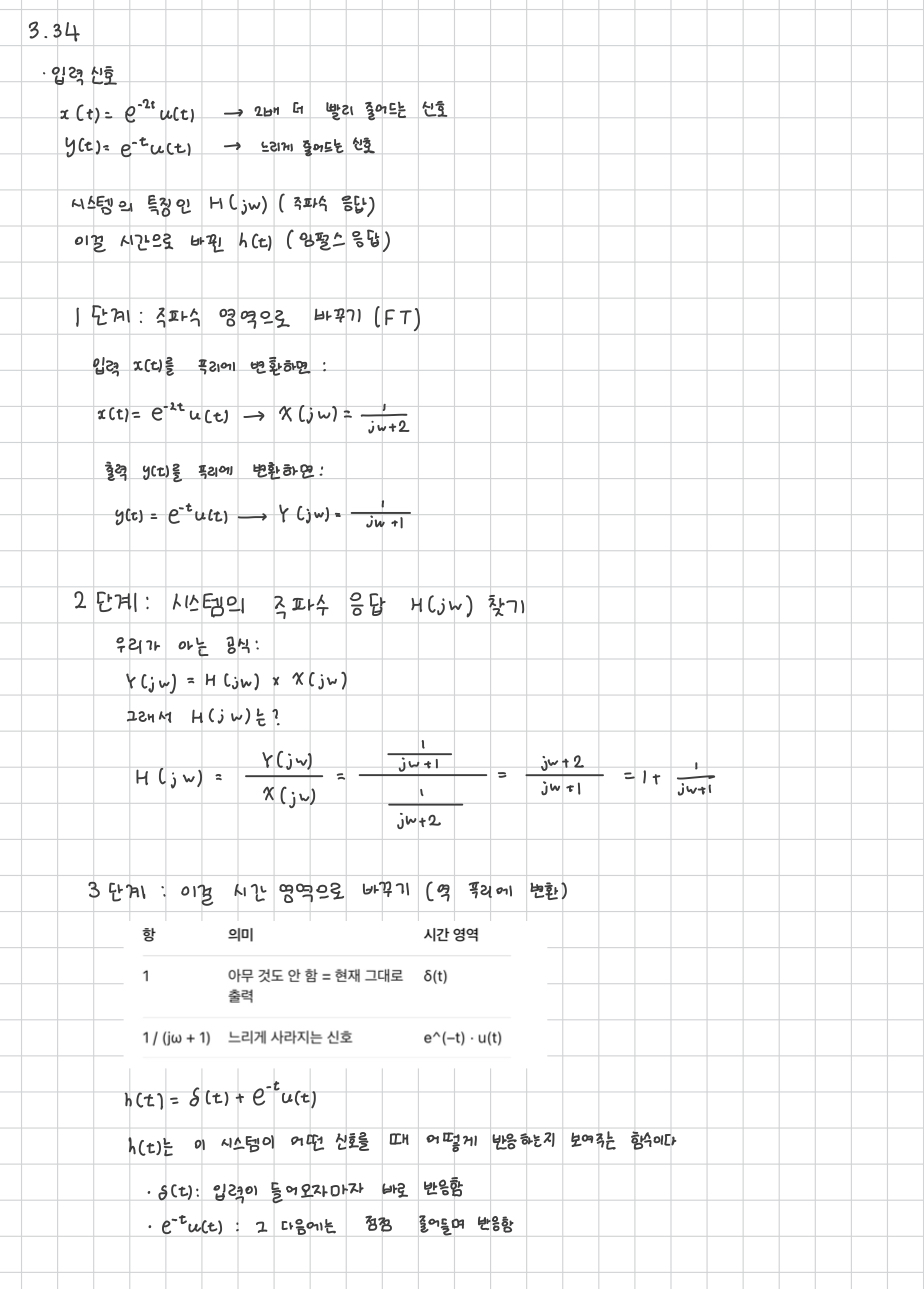 3.34
· 입력 신호
x(t) = e^-2t u(t) → 2배 더 빨리 줄어드는 신호
y(t) = e^-t u(t) → 느리게 줄어드는 신호
시스템의 특징인 H(jw) (주파수 응답)
이걸 시간으로 바뀐 h(t) (임펄스 응답)
1단계 : 주파수 영역으로 바꾸기 (FT)
입력 x(t)를 푸리에 변환하면 :
x(t) = e^-2t u(t) → X(jw) = 1/(jw+2)
출력 y(t)를 푸리에 변환하면 :
y(t) = e^-t u(t) → Y(jw) = 1/(jw+1)
2단계 : 시스템의 주파수 응답 H(jw) 찾기
우리가 아는 공식 :
Y(jw) = H(jw) x X(jw)
그래서 H(jw)는?
H(jw) = Y(jw)/X(jw) = (1/(jw+1))/(1/(jw+2)) = (jw+2)/(jw+1) = 1 + 1/(jw+1)
3단계 : 이걸 시간 영역으로 바꾸기 (역 푸리에 변환)
항 의미 시간 영역
1 아무 것도 안 함 = 현재 그대로 출력 δ(t)
1 / (jω + 1) 느리게 사라지는 신호 e^(−t) · u(t)
h(t) = δ(t) + e^-t u(t)
h(t)는 이 시스템이 어떤 신호를 때 어떻게 반응하는지 보여주는 함수이다
· δ(t) : 입력이 들어오자마자 바로 반응함
· e^-t u(t) : 그 다음에는 점점 줄어들며 반응함